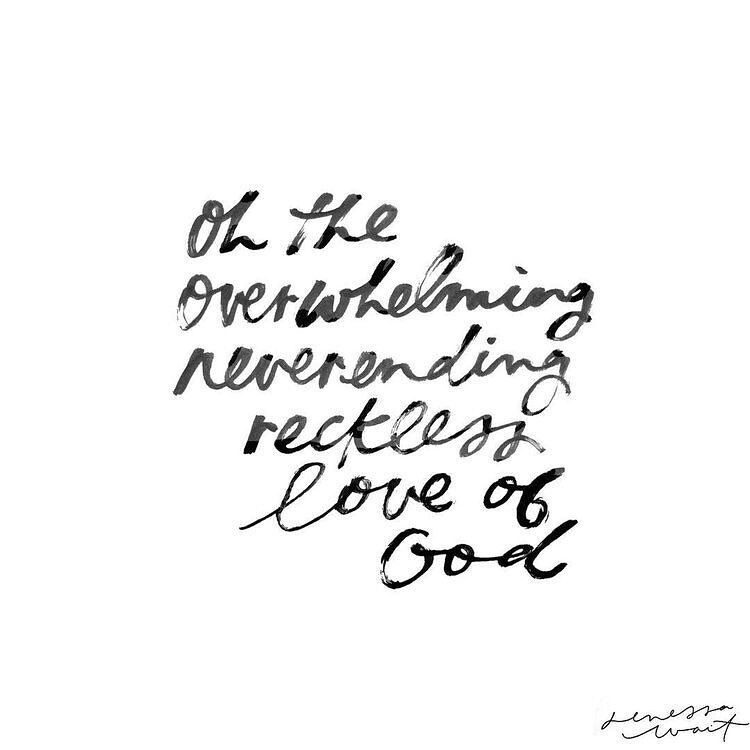 Oh the
overwhelming
neverending
reckless
love of
God
Jenessa
Wait